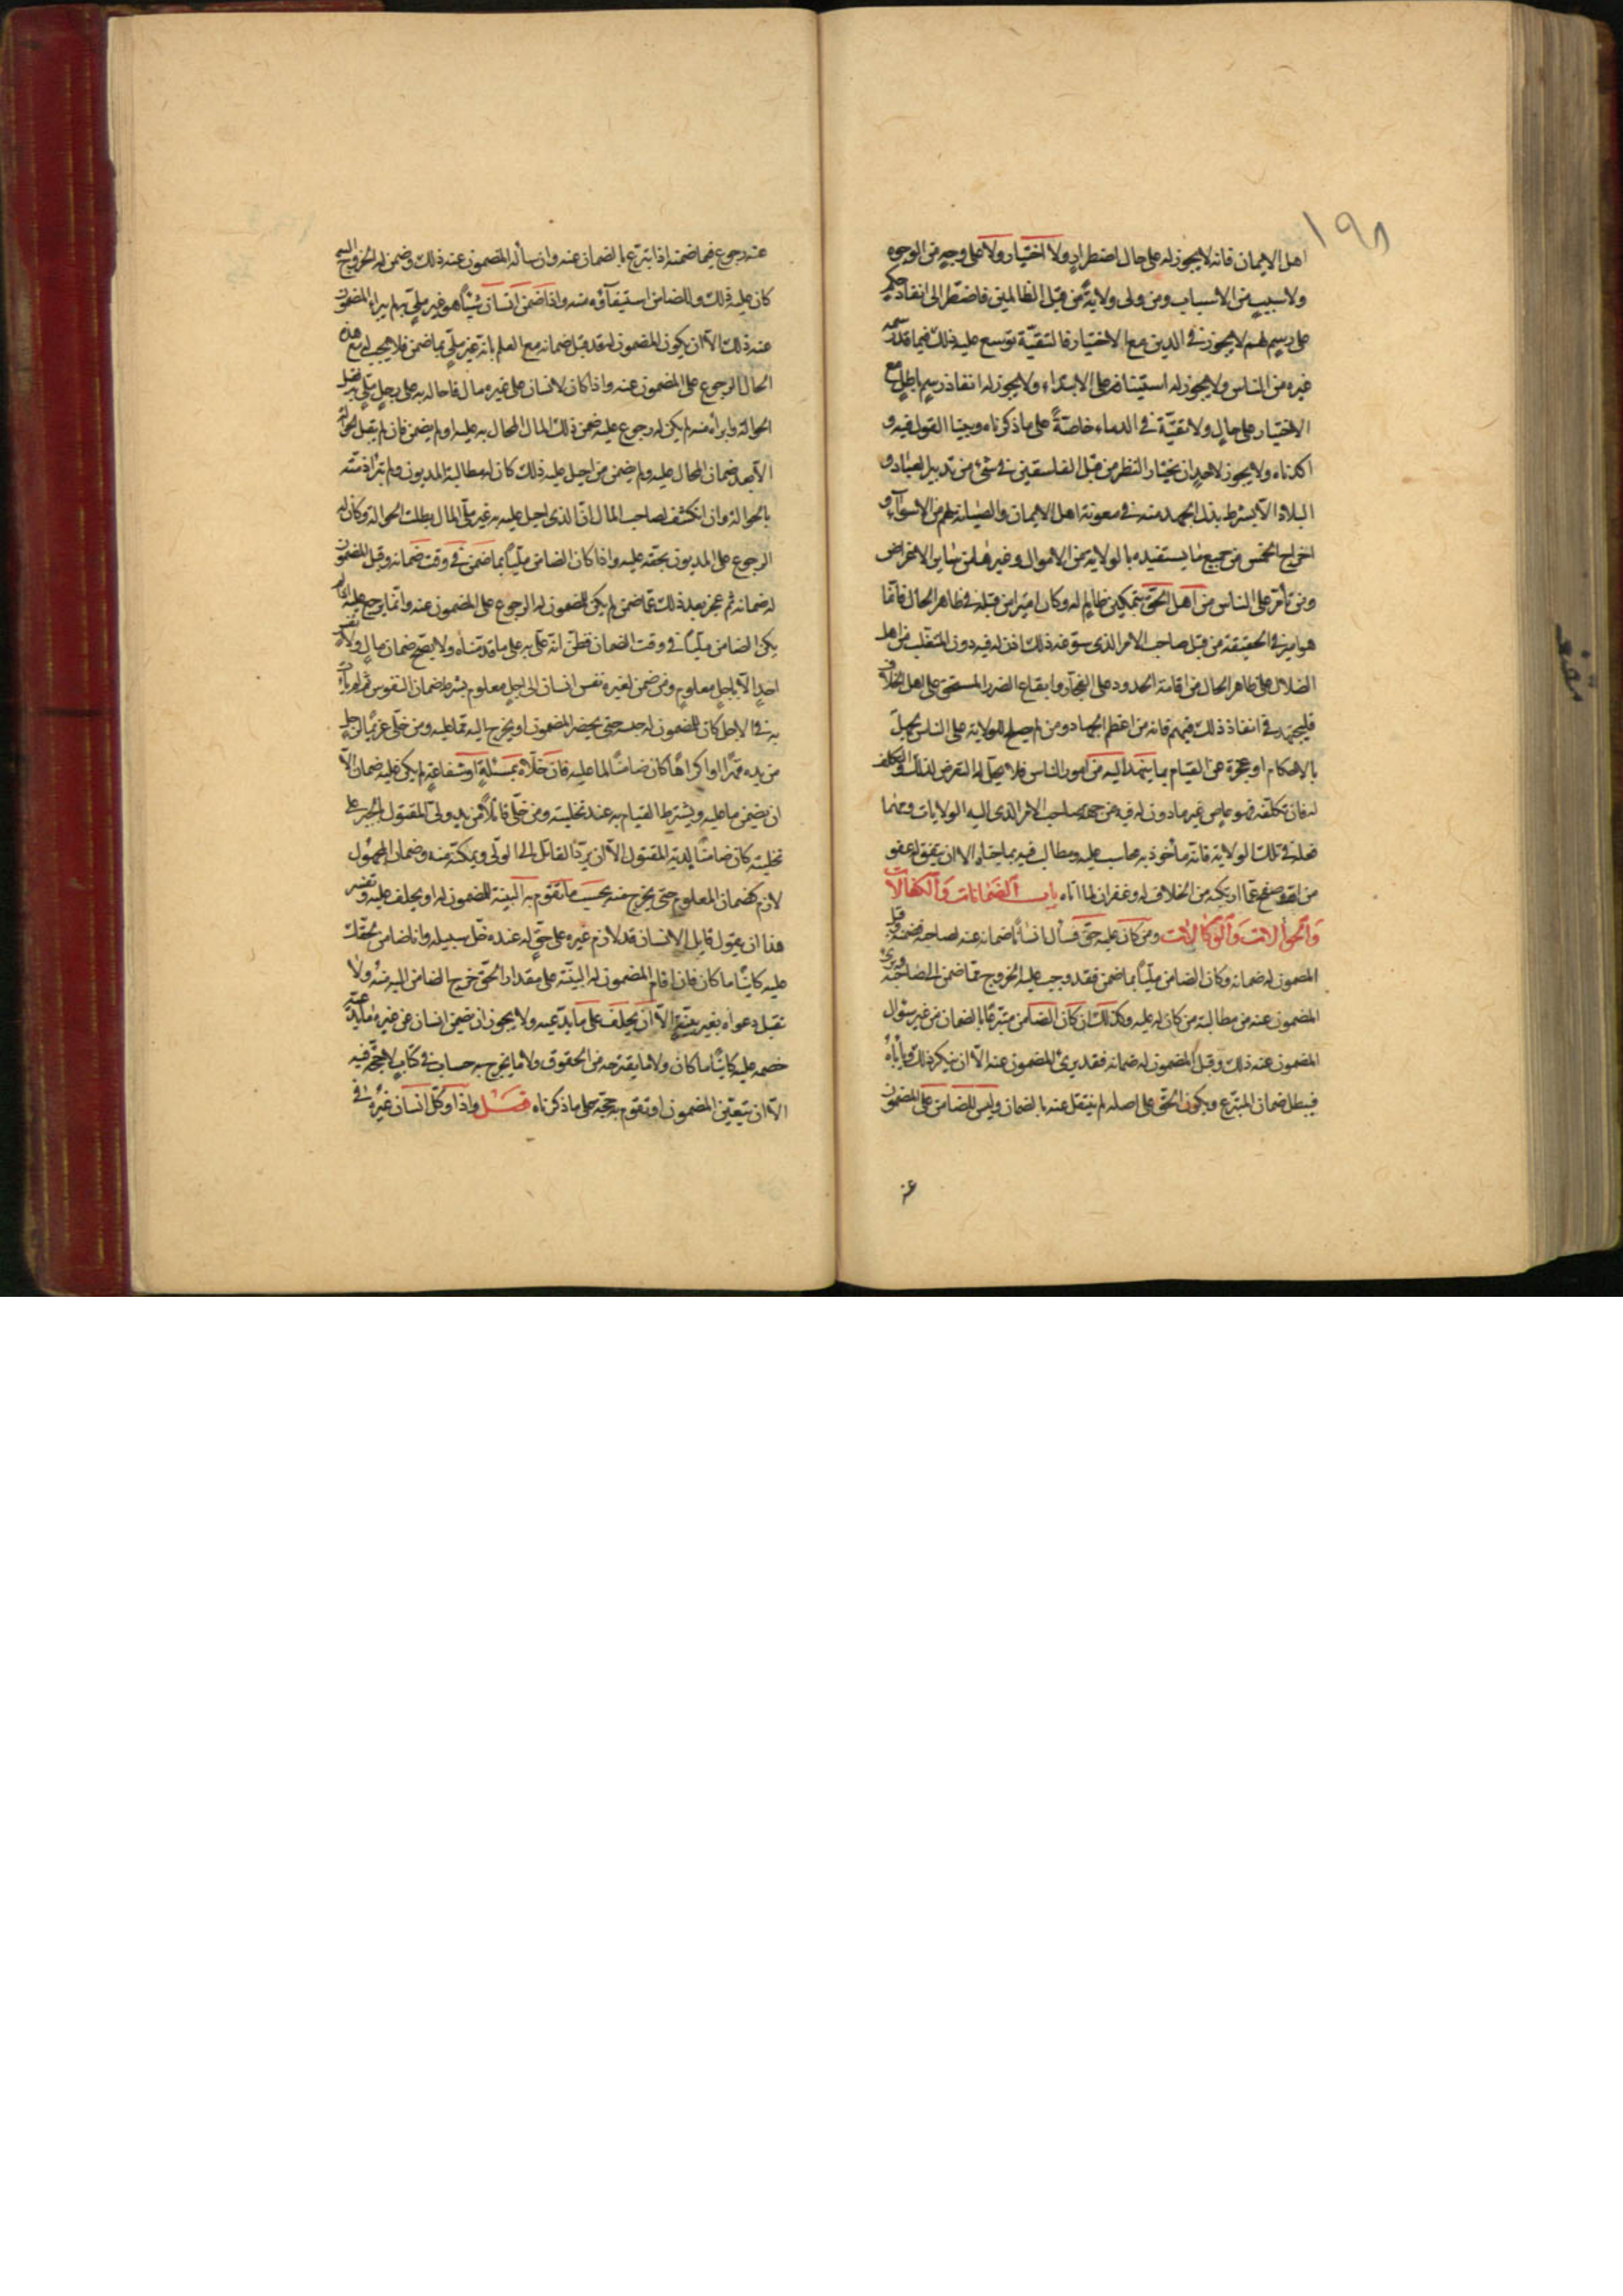 ١٩٨
اهل الايمان فانه لا يجوز له على حال اضطرار ولا اختيار ولا على وجه من الوجوه
ولا سبب من الاسباب ومن ولى ولاية من قبل الظالمين فاضطر الى انفاذ حكم
على رسم لهم لا يجوز في الدين مع الاختيار فالتقية توسع عليه ذلك فيما قد رسمه
غيره من الناس ولا يجوز له استينافه على الابتداء ولا يجوز له انفاذ رسم باطل مع
الاختيار على حال ولا تقية في الدماء خاصة على ما ذكرناه وبينا القول فيه و
اكدناه ولا يجوز لاحد ان يختار النظر من قبل الفاسقين في شئ من تدبير العباد و
البلاد الا بشرط بذل الجهد منه في معونة اهل الايمان والصيانة لهم من الاسواء و
اخراج الخمس من جميع ما يستفيده بالولاية من الاموال وغيرها من ساير الاغراض
ومن تأمر على الناس من اهل الحق بتمكين ظالم له وكان اميرا من قبله في ظاهر الحال فانما
هو امير في الحقيقة من قبل صاحب الامر الذى سوغه ذلك واذن له فيه دون المتغلب من اهل
الضلال على ظاهر الحال من اقامة الحدود على الفجار وايقاع الضرر المستحق على اهل الخلاف
فليجتهد في انفاذ ذلك فيهم فانه من اعظم الجهاد ومن لم يصلح للولاية على الناس لجهل
بالاحكام او عجزه عن القيام بما يسند اليه من امور الناس فلا يحل له التعرض لذلك والتكلف
له فان تكلفه فهو عاص غير ماذون له فيه من جهة صاحب الامر الذى اليه الولايات ومهما
فعله في تلك الولاية فانه مأخوذ به محاسب عليه ومطالب فيه بما جناه الا ان يتفق له عفو
من الله وصفح عما ارتكبه من الخلاف له وغفران لما اتاه باب الضمانات والكفالات
والحوالات والوكالات ومن كان عليه حق فسأل انسانا ضمانه عنه لصاحبه فضمنه وقبل
المضمون له ضمانه وكان الضامن مليا بما ضمن فقد وجب عليه الخروج مما ضمن الى صاحبه وبرئ
المضمون عنه من مطالبة من كان له عليه وكذلك ان كان الضامن متبرعا بالضمان من غير سؤال
المضمون عنه ذلك وقبل المضمون له ضمانه فقد برئ المضمون عنه الا ان ينكر ذلك ويأباه
فيبطل ضمان المتبرع ويكون الحق على اصله لم ينتقل عنه بالضمان وليس للضامن على المضمون
عنه
عنه رجوع فيما ضمنه اذا تبرع بالضمان عنه وان سأله المضمون عنه ذلك وضمن له الخروج اليه
كان عليه ذلك وللضامن استيفاؤه منه واذا ضمن انسان شيئا هو غير ملي به لم يبرء المضمون
عنه ذلك الا ان يكون المضمون له قد قبل ضمانه مع العلم بانه غير ملي بما ضمن فلا يجب له مع هذه
الحال الرجوع على المضمون عنه واذا كان لانسان على غيره مال فاحاله به على رجل ملي به فقبل
الحوالة وابرأه منه لم يكن له رجوع عليه ضمن ذلك المال المحال به عليه او لم يضمن فان لم يقبل الحوالة
الا بعد ضمان المحال عليه ولم يضمن من احيل عليه ذلك كان له مطالبة المديون ولم تبرأ ذمته
بالحوالة وان انكشف لصاحب المال ان الذى احيل عليه به غير ملي بالمال بطلت الحوالة وكان له
الرجوع على المديون بحقه عليه واذا كان الضامن مليا بما ضمن في وقت ضمانه وقبل المضمون
له ضمانه ثم عجز بعد ذلك عما ضمن لم يكن للمضمون له الرجوع على المضمون عنه وانما يرجع عليه اذا لم
يكن الضامن مليا في وقت الضمان فظن انه ملي به على ما قدمناه ولا يصح ضمان مال ولا نفس
احد الا باجل معلوم ومن ضمن لغيره نفس انسان الى اجل معلوم بشرط ضمان النفوس ثم لم يأت
به في الاجل كان للمضمون له حبسه حتى يحضر المضمون او يخرج اليه مما عليه ومن خلى غريما لرجل
من يده قهرا او اكراها كان ضامنا لما عليه فان خلاه بمسئلة او شفاعة لم يكن عليه ضمان الا
ان يضمن ما عليه ويشترط القيام به عند تخليته ومن خلى قاتلا من يد ولي المقتول بالجبر على
تخليته كان ضامنا لدية المقتول الا ان يرد القاتل الى الولي ويمكنه منه وضمان المجهول
لازم كضمان المعلوم حتى يخرج منه بحسب ما تقوم به البينة للمضمون له او يحلف عليه وتفسير
هذا ان يقول قايل لانسان قد لازم غيره على حق له عنده خل سبيله وانا ضامن لحقك
عليه كائنا ما كان فان اقام المضمون له البينة على مقدار الحق خرج الضامن اليه منه ولا
تقبل دعواه بغير بينة الا ان يحلف على ما يدعيه ولا يجوز ان يضمن انسان عن غيره ما يدعيه
خصمه عليه كائنا ما كان ولا ما يقترحه من الحقوق ولا ما يخرج به حساب في كتاب لا حجة فيه
الا ان يتعين المضمون او تقوم به حجة على ما ذكرناه فصل واذا وكل انسان غيره في